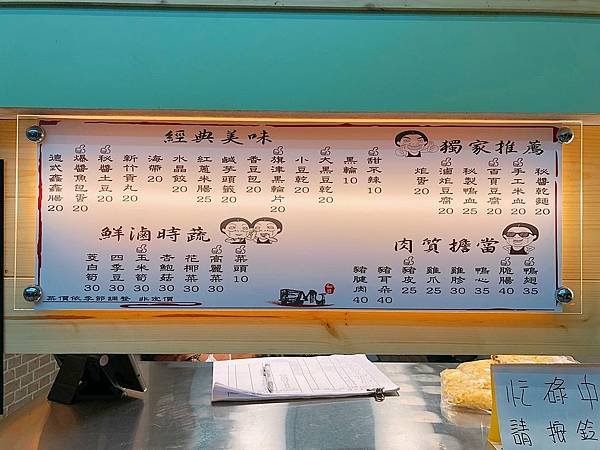 經典美味
甜不辣 10
黑輪 10
大黑豆乾 20
小豆乾 20
旗津黑輪片 20
香豆包 20
鹹芋頭籤 20
紅蔥米腸 25
水晶餃 20
海帶 20
新竹貢丸 20
秘醬土豆 20
爆醬魚包蛋 30
德式鑫鑫腸 20
獨家推薦
秘醬乾麵 20
手工米血 20
百頁豆腐 20
秘製鴨血 25
滷炸豆腐 20
炸蛋 20
鮮滷時蔬
菜頭 10
高麗菜 30
花椰菜 30
杏鮑菇 30
玉米筍 30
四季豆 30
茭白筍 30
菜價依季節調整 非定價
肉質擔當
鴨翅 35
脆腸 40
鴨心 35
雞胗 30
雞爪 25
豬皮 25
豬耳朵 40
豬腱肉 40
忙碌中
請按鈴